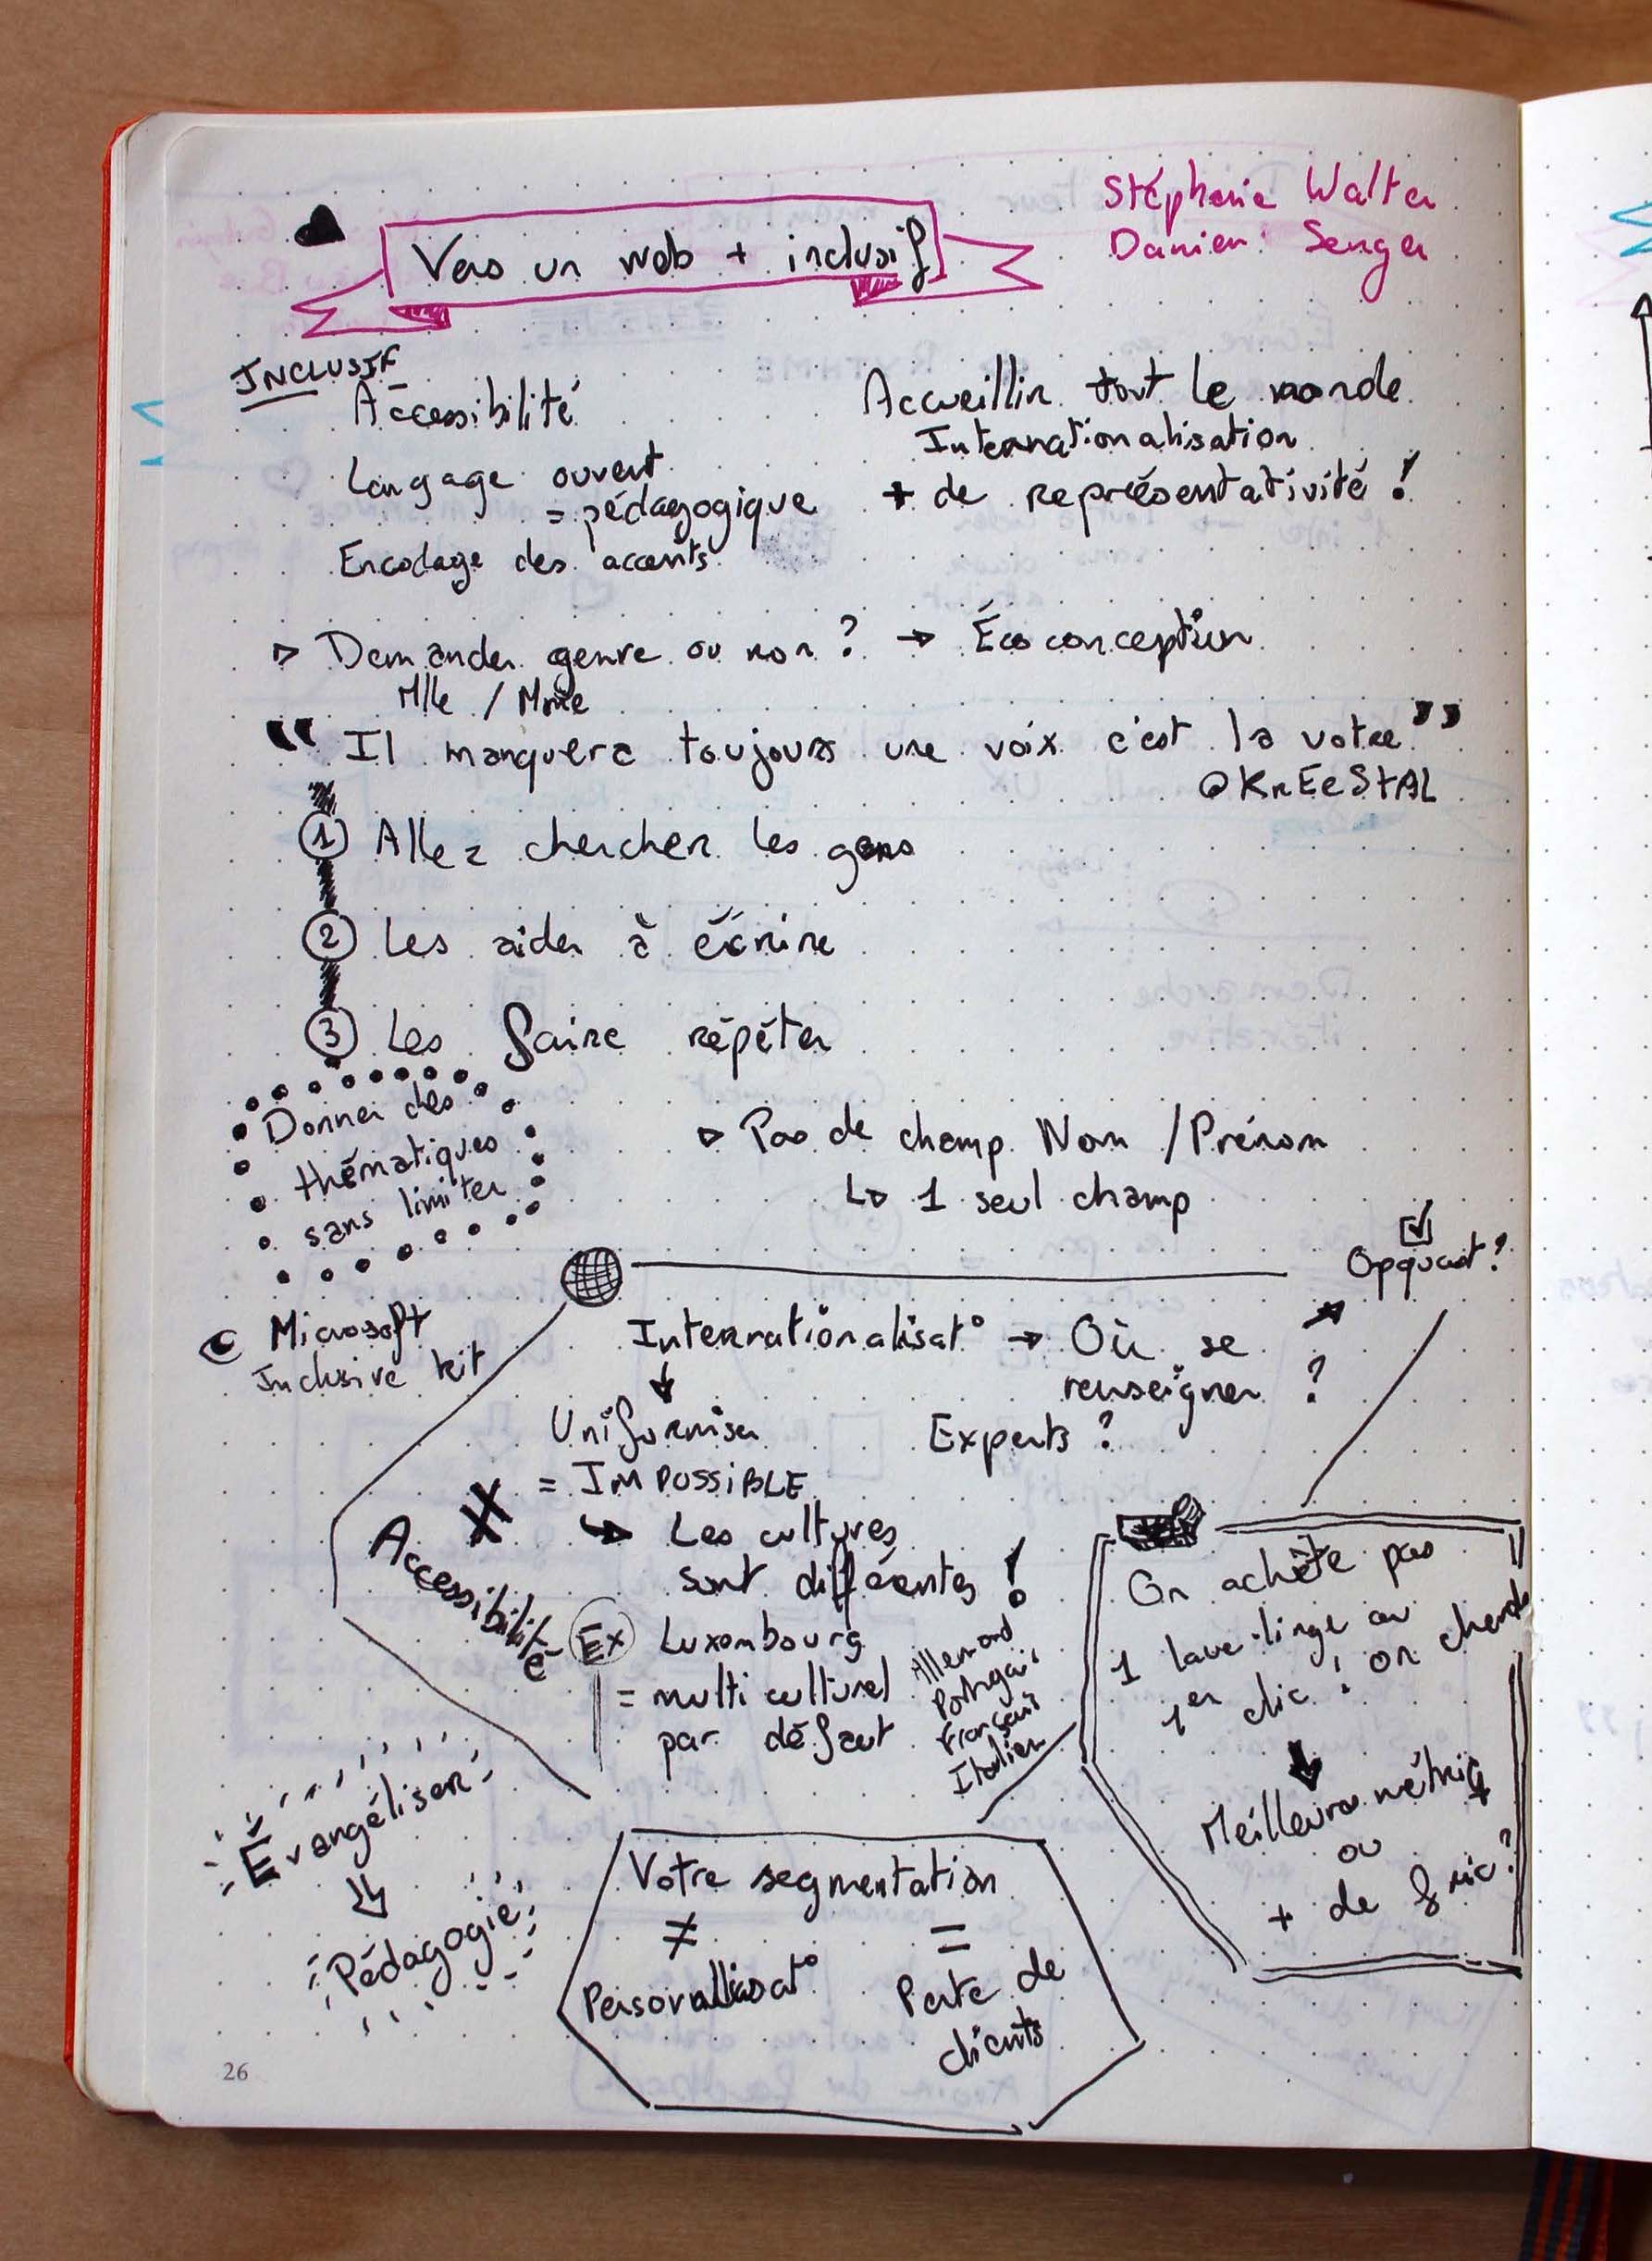 Stéphanie Walter
Damien Senger
Vers un web + inclusif
INCLUSIF
Accessibilité
Langage ouvert
= pédagogique
Encodage des accents
Accueillir tout le monde
Internationalisation
+ de représentativité !
Demander genre ou non ? → Éco conception
Mlle / Mme
“ Il manquera toujours une voix c'est la votre ”
@KnEeStAL
1 Allez chercher les gens
2 Les aider à écrire
3 Les faire répéter
Donner des
thématiques
sans limiter
Pas de champ Nom / Prénom
↳ 1 seul champ
Opquast ?
Microsoft
Inclusive kit
Internationalisat° → Où se
renseigner ?
Experts ?
Uniformiser
= IMPOSSIBLE
↳ Les cultures
sont différentes !
≠
Accessibilité
Ex Luxembourg
= multi culturel
par défaut
Allemand
Portugais
Français
Italien
On achète pas
1 lave-linge au
1er clic ! on cherche
↓
Meilleure métriq
ou
+ de fric ?
Évangéliser
↓
Pédagogie
Votre segmentation
≠ =
Personallisat°
Perte de
clients
26